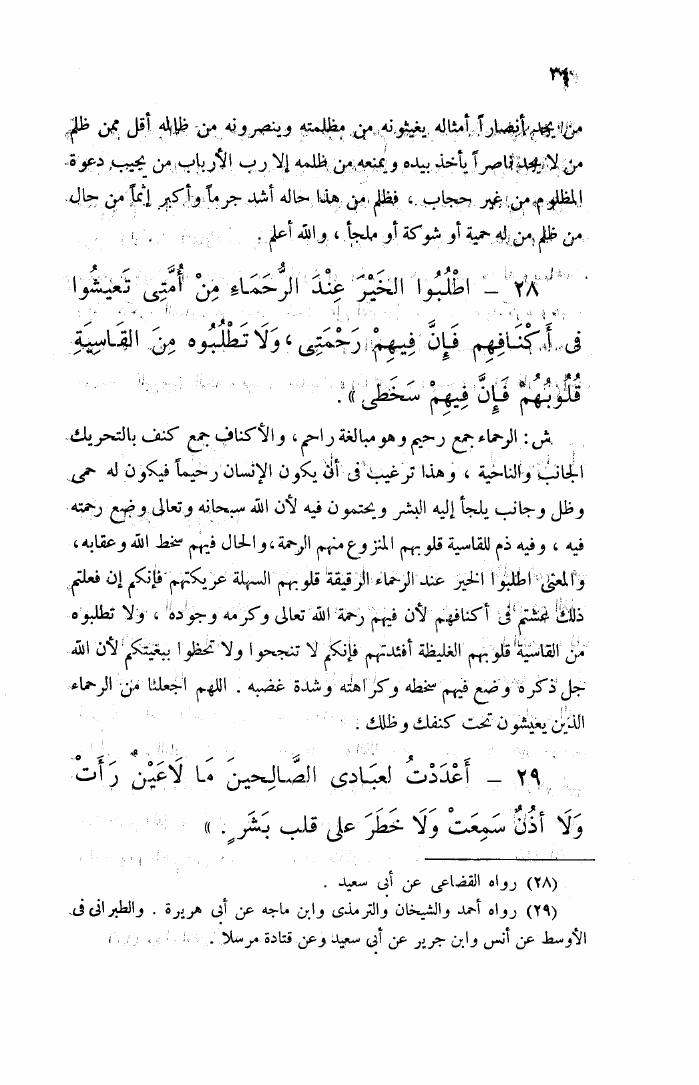 ٣٤
من يجد أنصاراً أمثاله يغيثونه من مظلمته وينصرونه من ظالمه أقل ممن ظلم
من لا يجد ناصراً يأخذ بيده ويمنعه من ظلمه إلا رب الأرباب من يجيب دعوة
المظلوم من غير حجاب ، فظلم من هذا حاله أشد جرماً وأكبر إثماً من حال
من ظلم من له حمية أو شوكة أو ملجأ ، والله أعلم .
٢٨ – اطْلُبُوا الخَيْرَ عِنْدَ الرُّحَمَاءِ مِنْ أُمَّتِى تَعِيشُوا
فى أَكْنَافِهِم فَإِنَّ فِيهِمْ رَحْمَتِى ، وَلَا تَطْلُبُوه مِنَ القَاسِيَةِ
قُلُوبُهُمْ فَإِنَّ فِيهِمْ سَخَطِى » .
ش : الرحماء جمع رحيم وهو مبالغة راحم ، والأكناف جمع كنف بالتحريك
الجانب والناحية ، وهذا ترغيب فى أن يكون الإنسان رحيماً فيكون له حمى
وظل وجانب يلجأ إليه البشر ويحتمون فيه لأن الله سبحانه وتعالى وضع رحمته
فيه ، وفيه ذم للقاسية قلوبهم المنزوع منهم الرحمة ، والحال فيهم سخط الله وعقابه ،
والمعنى اطلبوا الخير عند الرحماء الرقيقة قلوبهم السهلة عريكتهم فإنكم إن فعلتم
ذلك عشتم فى أكنافهم لأن فيهم رحمة الله تعالى وكرمه وجوده ، ولا تطلبوه
من القاسية قلوبهم الغليظة أفئدتهم فإنكم لا تنجحوا ولا تحظوا ببغيتكم لأن الله
جل ذكره وضع فيهم سخطه وكراهته وشدة غضبه . اللهم اجعلنا من الرحماء
الذين يعيشون تحت كنفك وظلك .
٢٩ – أَعْدَدْتُ لعبَادى الصَّالِحينَ مَا لَاعَيْنٌ رَأَتْ
وَلَا أذُنٌ سَمِعَتْ وَلَا خَطَرَ على قلب بَشَرٍ . »
(٢٨) رواه القضاعى عن أبى سعيد .
(٢٩) رواه أحمد والشيخان والترمذى وابن ماجه عن أبى هريرة . والطبرانى فى
الأوسط عن أنس وابن جرير عن أبى سعيد وعن قتادة مرسلا .